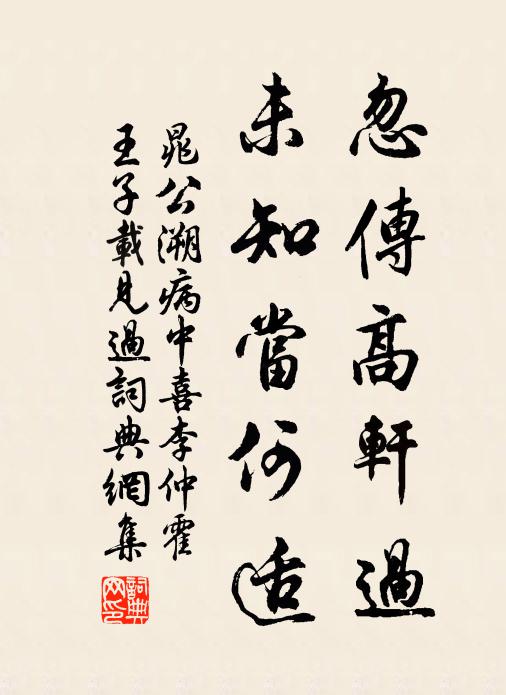 忽傳高軒過
未知當何适
晁公溯病中喜李仲霍
王子載見過詞典網集
詞典網印